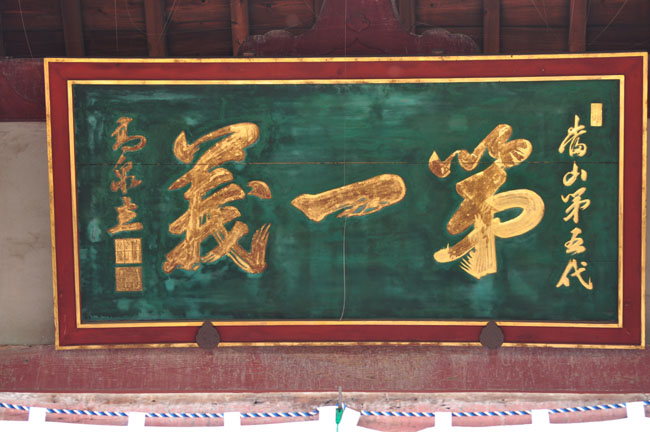 當山第五代
第一義
高泉書